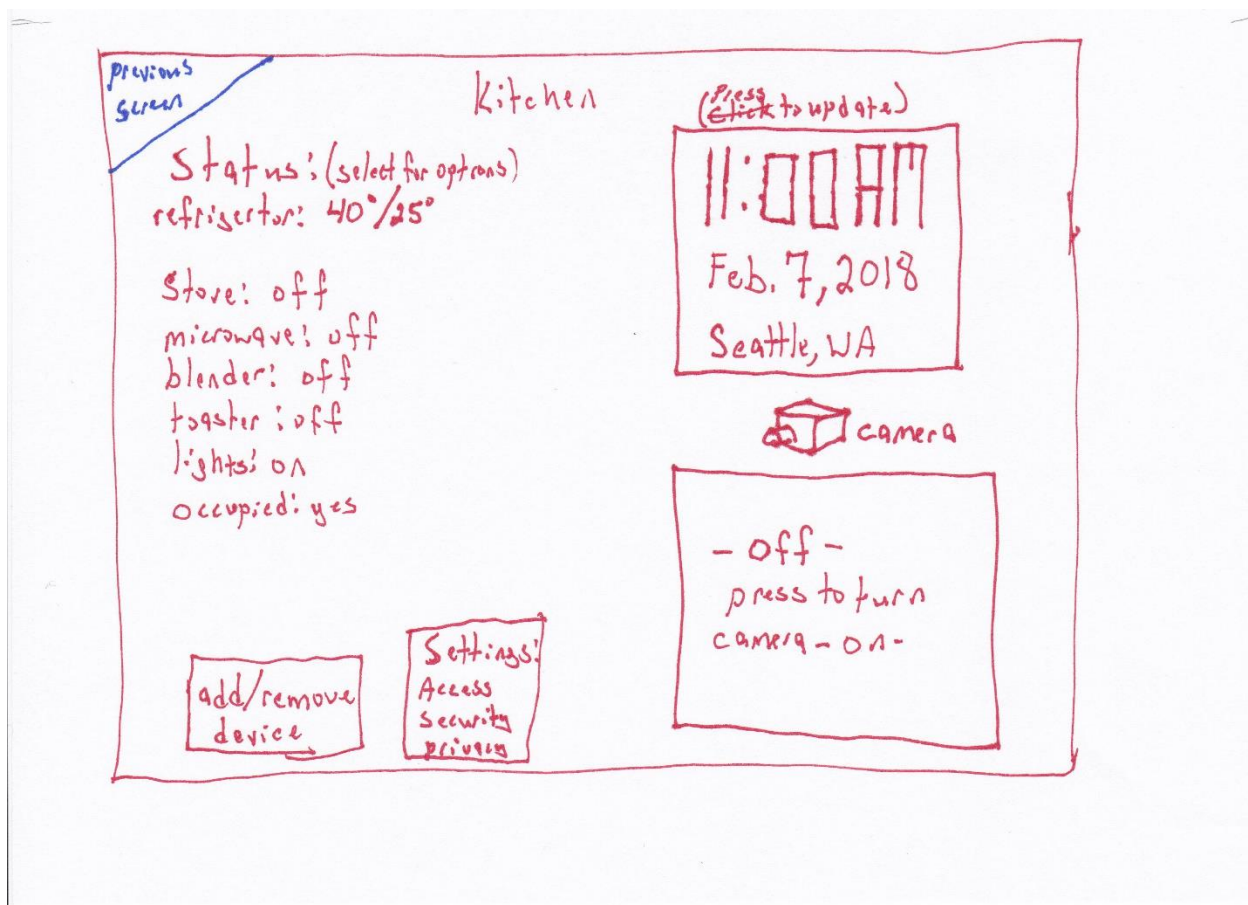 previous
screen
Kitchen
Press
(Click to update)
Status: (select for options)
refrigertor: 40°/25°
Stove: off
microwave: off
blender: off
toaster: off
lights: on
occupied: yes
add/remove
device
Settings:
Access
Security
privacy
11:00 AM
Feb. 7, 2018
Seattle, WA
camera
- off -
press to turn
camera - on -